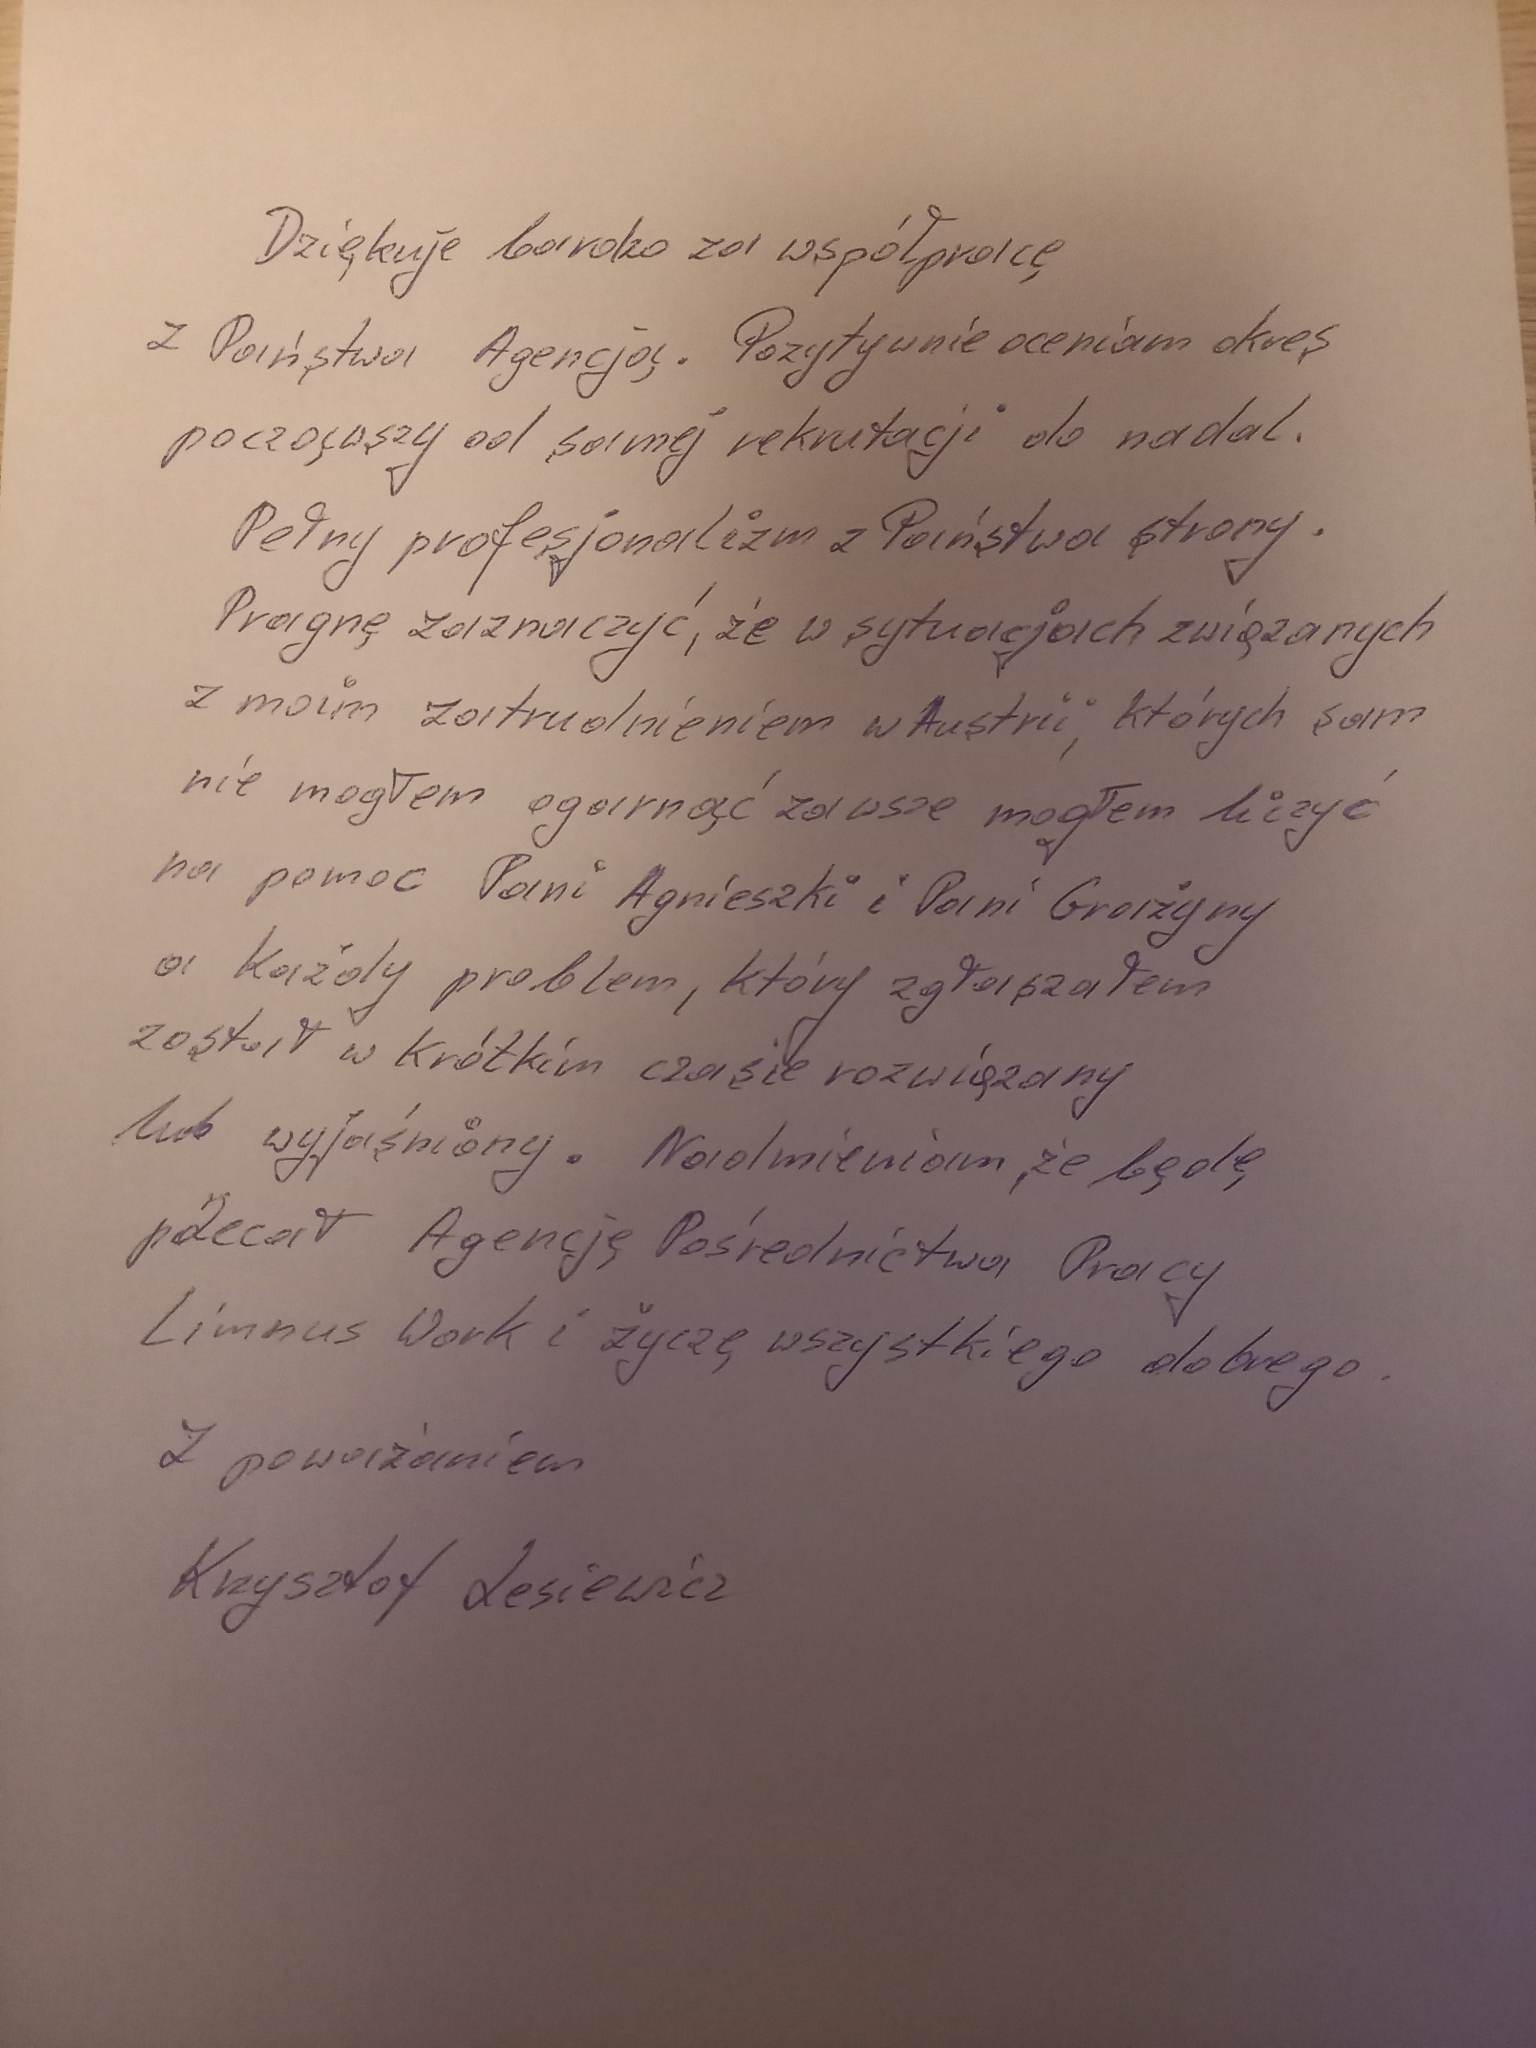 Dziękuje bardzo za współpracę
z Państwa Agencją. Pozytywnie oceniam okres
począwszy od samej rekrutacji do nadal.
Pełny profesjonalizm z Państwa strony.
Pragnę zaznaczyć, że w sytuacjach związanych
z moim zatrudnieniem w Austrii, których sam
nie mogłem ogarnąć zawsze mogłem liczyć
na pomoc Pani Agnieszki i Pani Grażyny
a każdy problem, który zgłaszałem
został w krótkim czasie rozwiązany
lub wyjaśniony. Nadmieniam, że będę
polecał Agencję Pośrednictwa Pracy
Limnus Work i życzę wszystkiego dobrego.
Z poważaniem
Krzysztof Lesiewicz